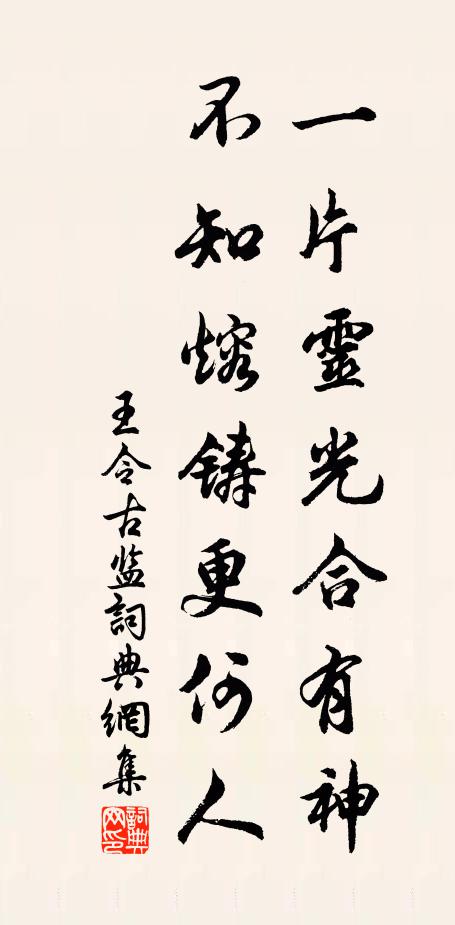 一片靈光合有神
不知熔铸更何人
王令古监詞典網集
詞典網印